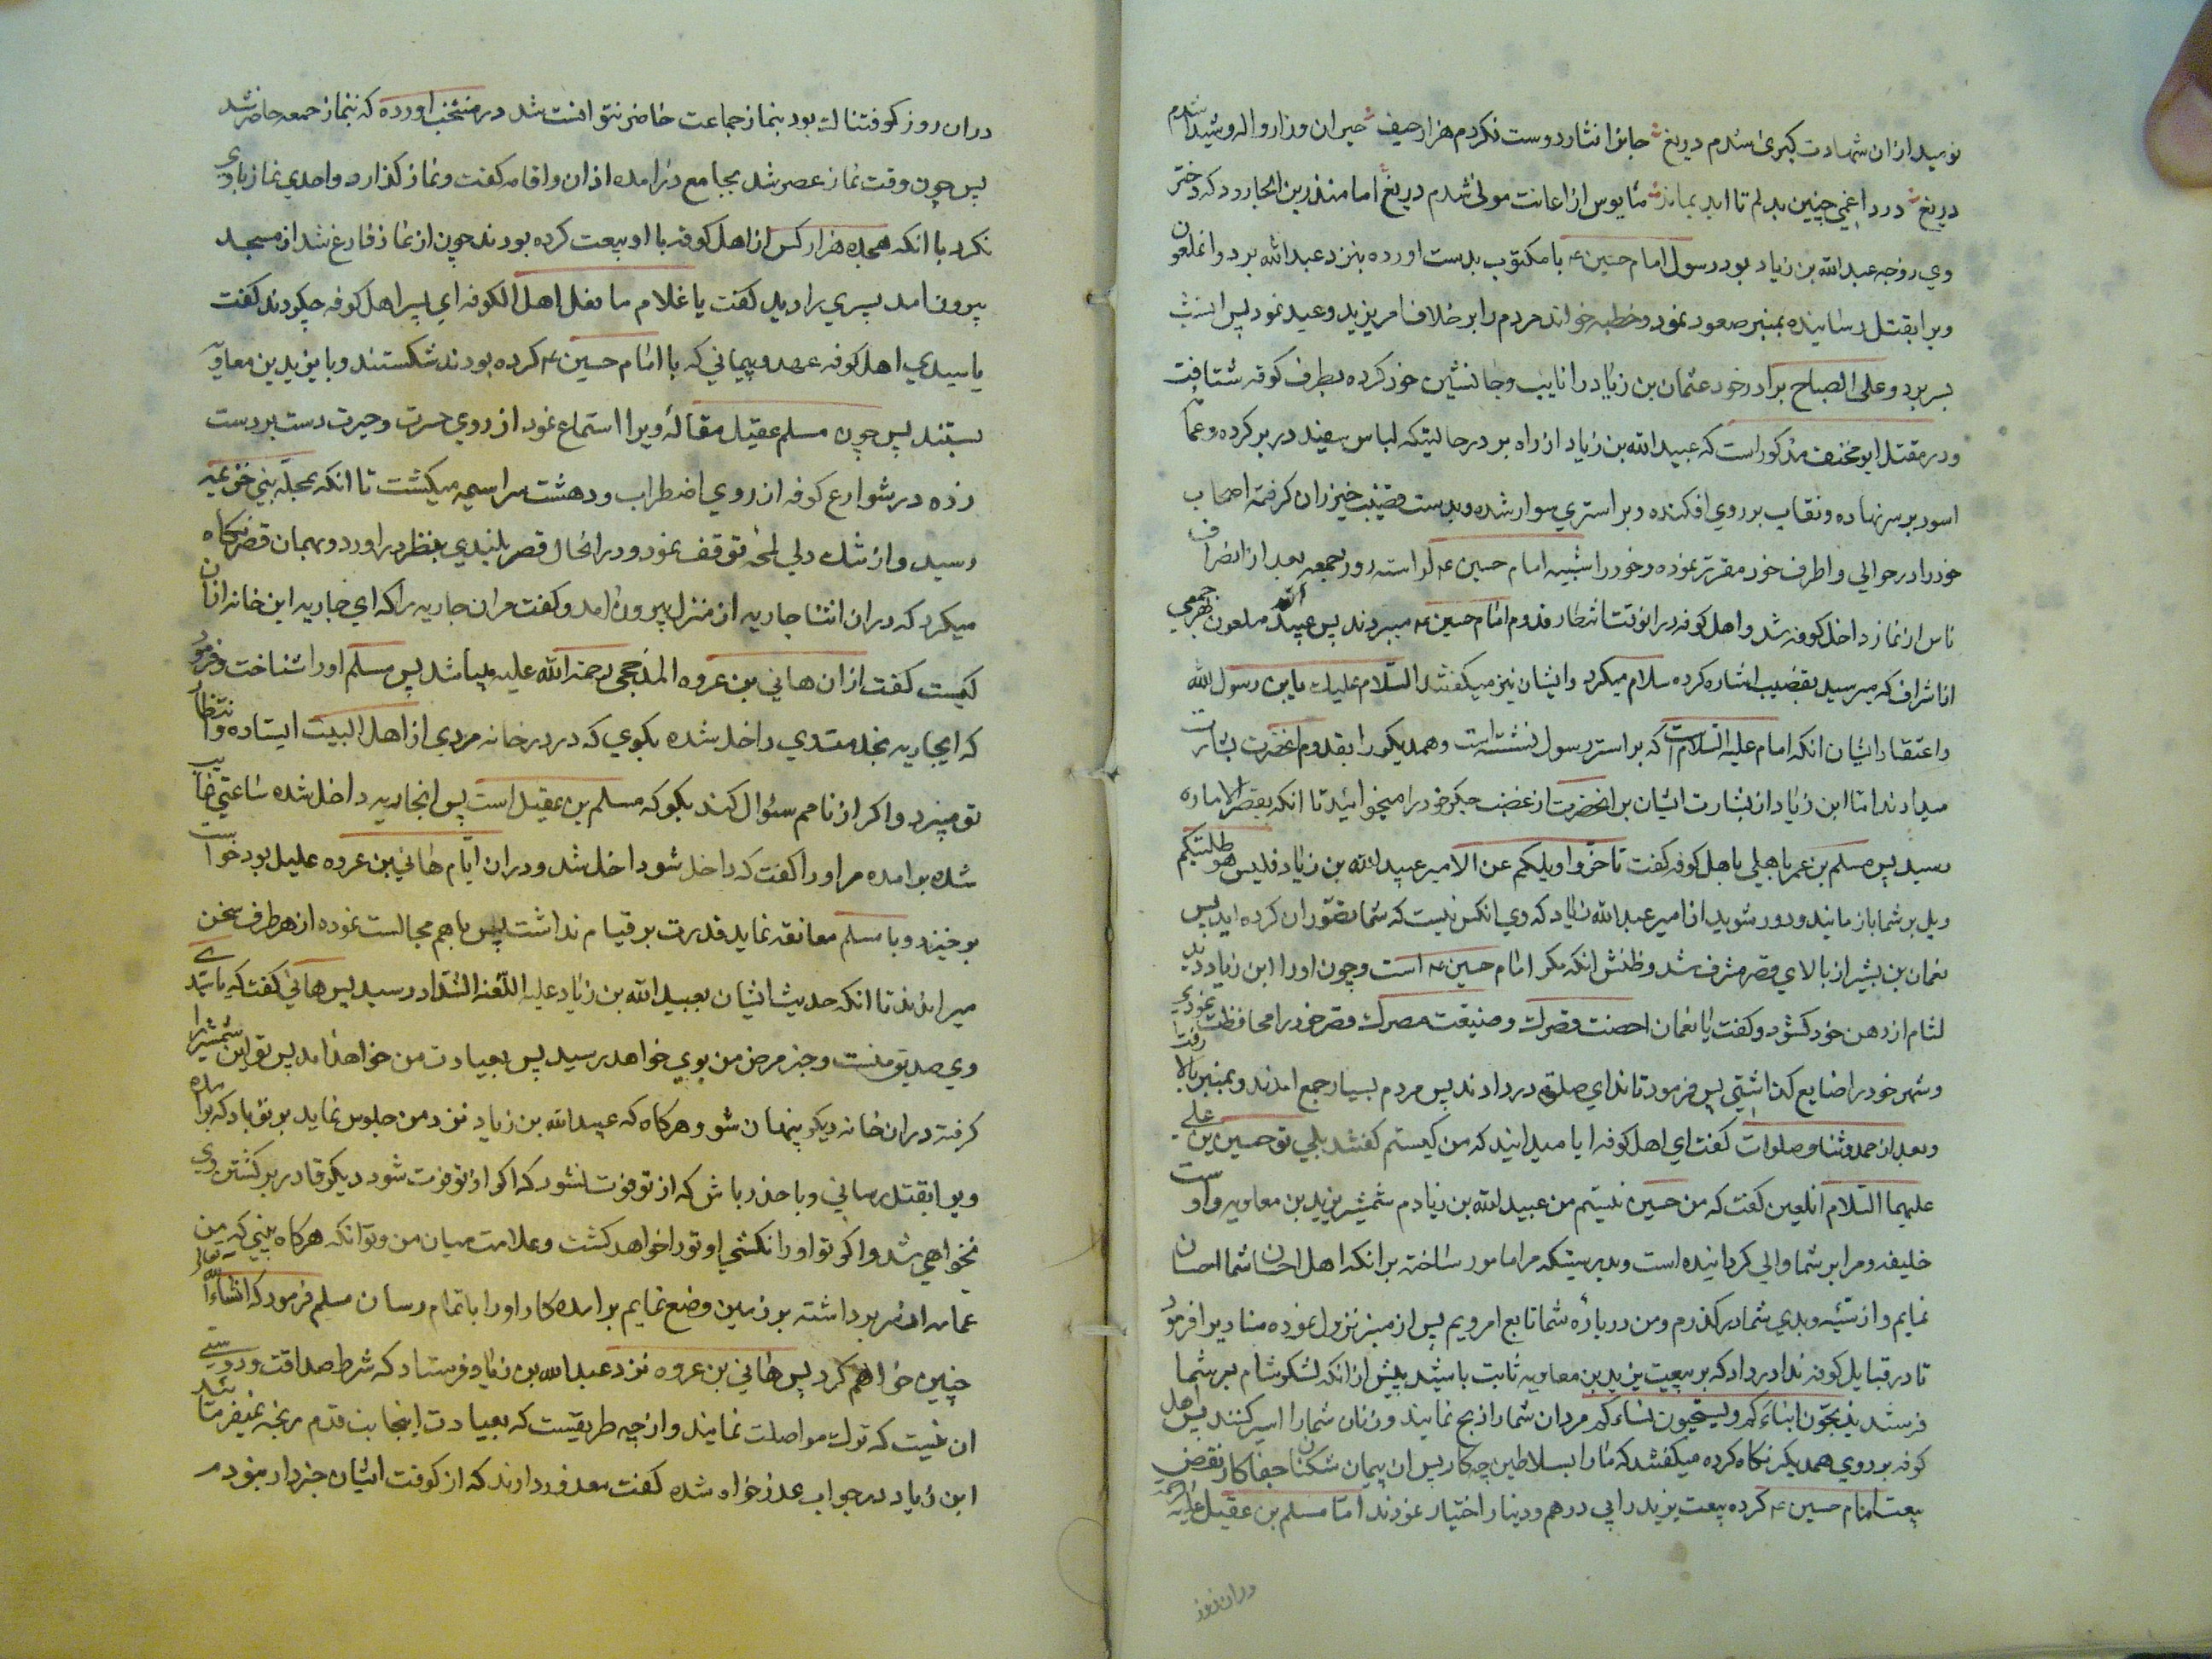 نومید ازان شهادت کبری شدم دریغ جانرا نثار دوست نکردم هزار حیف حیران وزار واله وشیدا شدم
دریغ درد اغمی چنین بدلم تا ابد بماند مایوس از اعانت مولی شدم دریغ اما منذر بن الجارود که دختر
وی زوجه عبد الله بن زیاد بود رسول امام حسین ع با مکتوب بدست اورده بنزد عبد الله برد وانملعون
ویرا بقتل رسانیده بمنبر صعود نمود وخطبه خواند مردم را بر خلاف امر یزید وعید نمود پس انشب
بسر برد وعلی الصباح برادر خود عثمان بن زیاد را نایب وجانشین خود کرده بطرف کوفه شتافت
ودر مقتل ابو مخنف مذکور است که عبید الله بن زیاد از راه بر در حالیتکه لباس سفید در بر کرده وعمامه
اسود بر سر نهاده ونقاب بر روی افکنده وبر استری سوار شده وبدست قضیب خیزران کرفته اصحاب
خود را در حوالی واطراف خود مقرر نموده وخود را شبیه امام حسین ع اراسته روز جمعه بعد از انصراف
ناس از نماز داخل کوفه شد واهل کوفه در انوقت انتظار قدوم امام حسین ع میبردند پس عبید الله ملعون بهر جمعی
از اشراف که میرسید بقضیب اشاره کرده سلام میکرد وایشان نیز میکفتند السلام علیک یابن رسول الله
واعتقاد ایشان انکه امام علیه السلام است که بر استر رسول نشسته است وهمدیکر را بقدوم انحضرت بشارت
میدادند اما ابن زیاد از بشارت ایشان بر انحضرت از غضب جکر خود را میخوائید تا انکه بقصر الاماره
رسید پس مسلم بن عمر باهلی باهل کوفه کفت تاخروا ویلکم عن الامیر عبید الله بن زیاد فلیس هو طلبتکم
ویل بر شما باز مانید ودور شوید از امیر عبد الله زیاد که وی انکس نیست که شما تصور ان کرده اید پس
نعمان بن بشیر از بالای قصر مشرف شد وظنش انکه مکر امام حسین ع است وچون اورا ابن زیاد دید
لثام از دهن خود کشود وکفت یا نعمان احصنت قصرک وضیعت مصرک قصر خود را محافظت نمودی
وشهر خود را ضایع کذاشتی پس فرمود تا ندای صلوة در دادند پس مردم بسیار جمع امدند وبمنبر بالا رفت
وبعد از حمد وثنا وصلوات کفت ای اهل کوفه ایا میدانید که من کیستم کفتند بلی تو حسین بن علی
علیهما السلام انلعین کفت که من حسین نیستم من عبید الله بن زیادم شمشیر یزید بن معاویه واوست
خلیفه ومرا بر شما والی کردانیده است وبدرستیکه مرا مامور ساخته بر انکه اهل احسان شما احسان
نمایم واز سیئه وبدی شما درکذرم ومن در باره شما تابع امر ویم پس از منبر نزول نموده منادیرا فرمود
تا در قبایل کوفه ندا در داد که بر بیعت یزید بن معاویه ثابت باشید پیش از انکه لشکر شام بر شما
فرستد یذبحون ابناءکم ویستحیون نساءکم مردان شما را ذبح نمایند وزنان شما را اسیر کنند پس اهل
کوفه بر روی همدیکر نکاه کرده میکفتند که ما را بسلاطین چه کار پس ان پیمان شکنان جفا کار نقض
بیعت امام حسین ع کرده بیعت یزید را پی درهم ودینار اختیار نمودند اما مسلم بن عقیل علیه الرحمه
دران روز
دران روز کوفتناک بود بنماز جماعت حاضر نتوانست شد در منتخب اورده که بنماز جمعه حاضر شد
پس چون وقت نماز عصر شد بجامع درامده اذان واقامه کفت ونماز کذارد واحدی نماز باوی
نکرد با انکه هجده هزار کس از اهل کوفه با او بیعت کرده بودند چون از نماز فارغ شد از مسجد
بیرون امد پسری را دید کفت یا غلام ما فعل اهل الکوفه ای پسر اهل کوفه چکردند کفت
یا سیدی اهل کوفه عهد وپیمانی که با امام حسین ع کرده بودند شکستند وبا یزید بن معاویه
بستند پس چون مسلم عقیل مقاله ویرا استماع نمود از روی حسرت وحیرت دست بر دست
زده در شوارع کوفه از روی اضطراب ودهشت سراسیمه میکشت تا انکه بمحله بنی خزیمه
رسید واز شک دلی لمحه توقف نمود ودر انحال قصر بلندی بنظر در اورد وبهمان قصر نکاه
میکرد که دران اثنا جاریه از منزل بیرون امد وکفت مران جاریه را که ای جاریه این خانه ازان
کیست کفت ازان هانی بن عروه المذحجی رحمة الله علیه میباشد پس مسلم اورا شناخت وفرمود
که ایجاریه بخدمتدی داخل شده بکوی که در در خانه مردی از اهل البیت ایستاده وانتظار
تو میبرد واکر از نامم سئوال کند بکو که مسلم بن عقیل است پس انجاریه داخل شده ساعتی غایب
شده برامده مر اورا کفت که داخل شو داخل شد ودران ایام هانی بن عروه علیل بود خواست
برخیزد وبا مسلم معانقه نماید قدرت بر قیام نداشت پس باهم مجالست نموده از هر طرف سخن
میراندند تا انکه حدیث ایشان بعبید الله بن زیاد علیه اللعنة الشداد رسید پس هانی کفت که یا سیدی
وی صدیق منست وخبر مرض من بوی خواهد رسید پس بعیادت من خواهد امد پس تو این شمشیر را
کرفته دران خانه دیکر پنهان شو وهرکاه که عبید الله بن زیاد نزد من جلوس نماید بر تو باد که برامده
ویرا بقتل رسانی وبا حذر باش که از تو فوت نشود که اکر از تو فوت شود دیکر قادر بر کشتن وی
نخواهی شد واکر تو اورا نکشی او تورا خواهد کشت وعلامت میان من وتو انکه هرکاه بینی که من
عمامه از سر برداشته بر زمین وضع نمایم برامده کار اورا باتمام رسان مسلم فرمود که انشاء الله تعالی
چنین خواهم کرد پس هانی بن عروه نزد عبد الله بن زیاد فرستاد که شرط صداقت ودوستی
ان نیست که ترک مواصلت نمایند واز چه طریقیست که بعیادت اینجانب قدم رنجه نمیفرمایند
ابن زیاد در جواب عذر خواه شده کفت معذور دارند که از کوفت ایشان خبردار نبودم